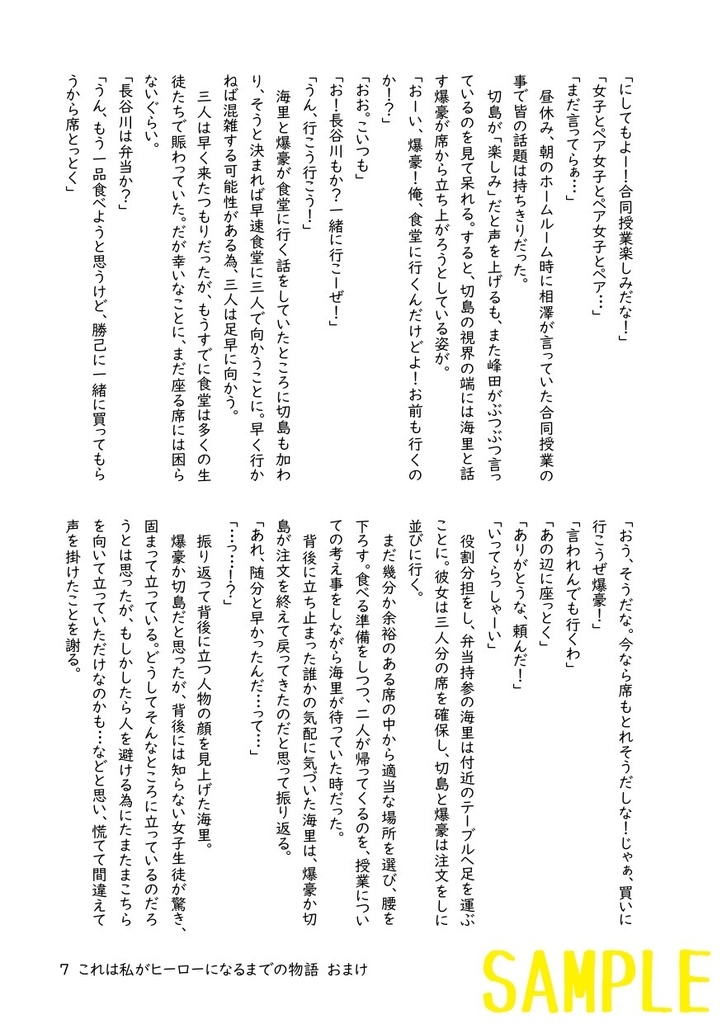 「にしてもよー！合同授業楽しみだな！」
「女子とペア女子とペア女子とペア…」
「まだ言ってらぁ…」
　昼休み、朝のホームルーム時に相澤が言っていた合同授業の
事で皆の話題は持ちきりだった。
　切島が「楽しみ」だと声を上げるも、また峰田がぶつぶつ言っ
ているのを見て呆れる。すると、切島の視界の端には海里と話
す爆豪が席から立ち上がろうとしている姿が。
「おーい、爆豪！俺、食堂に行くんだけどよ！お前も行くの
か！？」
「おお。こいつも」
「お！長谷川もか？一緒に行こーぜ！」
「うん、行こう行こう！」
　海里と爆豪が食堂に行く話をしていたところに切島も加わ
り、そうと決まれば早速食堂に三人で向かうことに。早く行か
ねば混雑する可能性がある為、三人は足早に向かう。
　三人は早く来たつもりだったが、もうすでに食堂は多くの生
徒たちで賑わっていた。だが幸いなことに、まだ座る席には困ら
ないぐらい。
「長谷川は弁当か？」
「うん、もう一品食べようと思うけど、勝己に一緒に買ってもら
うから席とっとく」
「おう、そうだな。今なら席もとれそうだしな！じゃぁ、買いに
行こうぜ爆豪！」
「言われんでも行くわ」
「あの辺に座っとく」
「ありがとうな、頼んだ！」
「いってらっしゃーい」
　役割分担をし、弁当持参の海里は付近のテーブルへ足を運ぶ
ことに。彼女は三人分の席を確保し、切島と爆豪は注文をしに
並びに行く。
　まだ幾分か余裕のある席の中から適当な場所を選び、腰を
下ろす。食べる準備をしつつ、二人が帰ってくるのを、授業につい
ての考え事をしながら海里が待っていた時だった。
　背後に立ち止まった誰かの気配に気づいた海里は、爆豪か切
島が注文を終えて戻ってきたのだと思って振り返る。
「あれ、随分と早かったんだ…って…」
「…っ…！？」
　振り返って背後に立つ人物の顔を見上げた海里。
　爆豪か切島だと思ったが、背後には知らない女子生徒が驚き、
固まって立っている。どうしてそんなところに立っているのだろ
うとは思ったが、もしかしたら人を避ける為にたまたまこちら
を向いて立っていただけなのかも…などと思い、慌てて間違えて
声を掛けたことを謝る。
7 これは私がヒーローになるまでの物語 おまけ
SAMPLE